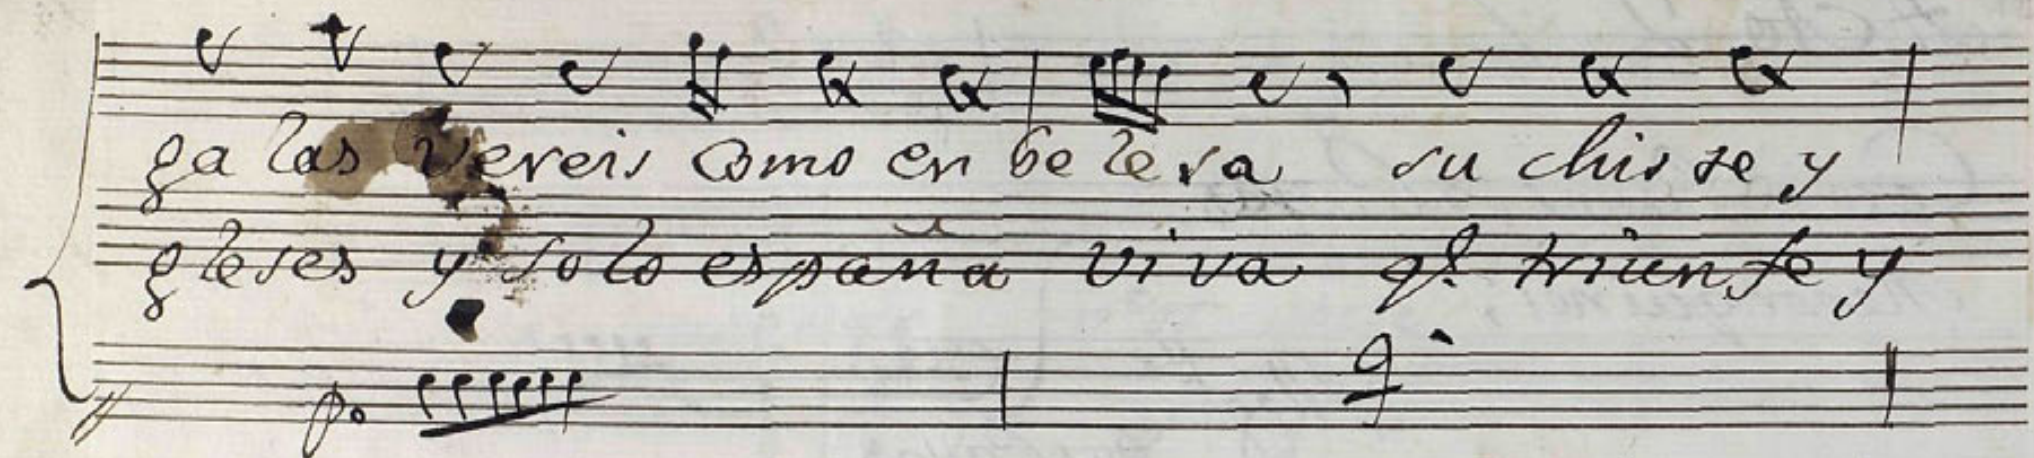 ga las vereis como en be le sa su chis te y
gleses y solo españa viva q.e triunfe y
p.o